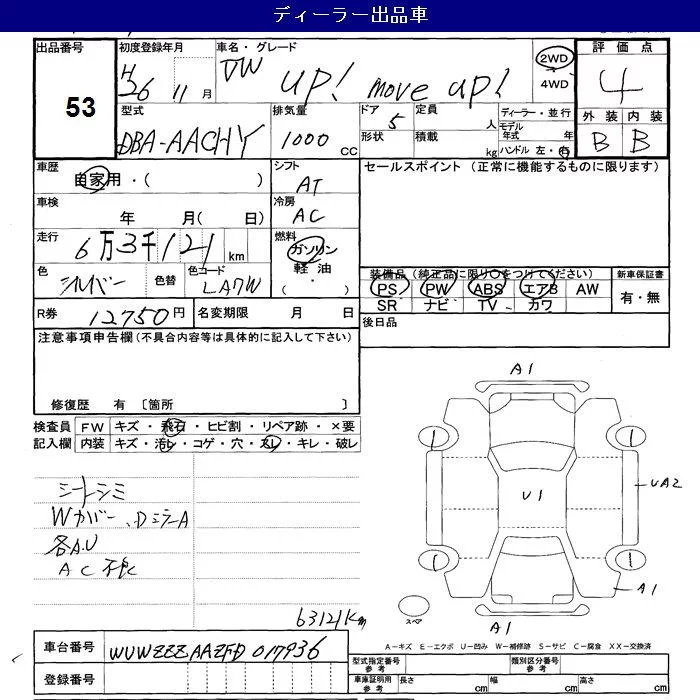 ディーラー出品車
出品番号
53
初度登録年月
H26 11月
車名・グレード
VW up! move up!
2WD
4WD
評価点
4
型式
DBA-AACHY
排気量
1000 CC
ドア
5
形状
定員
人
積載
kg
ディーラー・並行
モデル年式 年
ハンドル 左・右
外装 内装
B B
車歴
自家用・( )
シフト
AT
セールスポイント (正常に機能するものに限ります)
車検
年 月( 日)
冷房
AC
走行
6万3千121 km
燃料
ガソリン
軽油
( ・ )
色
シルバー
色替
色コード
LA7W
装備品 (純正品に限り○をつけてください)
PS PW ABS エアB AW
SR ナビ TV カワ
新車保証書
有・無
R券
12750円
名変期限 月 日
後日品
注意事項申告欄(不具合内容等は具体的に記入して下さい)
修復歴 有 〔箇所 〕
検査員 FW キズ・飛石・ヒビ割・リペア跡・×要
記入欄 内装 キズ・汚レ・コゲ・穴・スレ・キレ・破レ
シートシミ
Wカバー、DミラーA
各A.U
AC不良
63121Km
A1
1 1
U1
UA2
1 1
A1
スペア
A1
A-キズ E-エクボ U-凹み W-補修跡 S-サビ C-腐食 XX-交換済
車台番号
WVWZZZAAZFD017936
登録番号
型式指定番号
参考
類別区分番号
参考
車庫証明用
参考
長さ cm 幅 cm 高さ cm